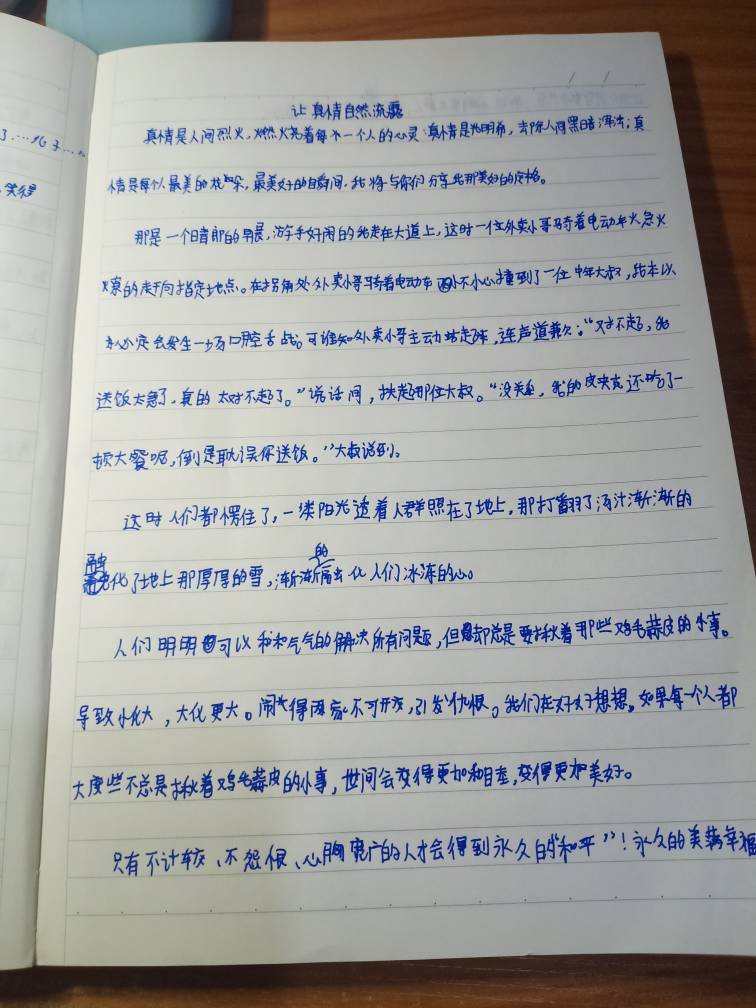 让真情自然流露
真情是人间烈火,燃火着每个一个人的心灵,真情是光明希,去除人间黑暗浑浊;真
情是每个人最美的花朵,最美好的瞬间,我将与你们分享我那美好的
那是一个晴郎的早晨,游手好闲的我走在大道上,这时一位外卖小哥骑着电动车火急火
燎的走向指定地点。在拐角处外卖小哥骑着电动车不小心撞到了一位中年大叔,我本以
为必定会发生一场口腔舌战。可谁知外卖小哥主动站起来,连声道歉:“对不起,我
送饭太急了,真的太对不起了。”说话间,扶起那位大叔。“没关系,我的皮夹克还吃了一
顿大餐呢,倒是耽误你送饭。”大叔说到。
这时人们都愣住了,一缕阳光透着人群照在了地上,那打翻了汤汁渐渐的
融化了地上那厚厚的雪,渐渐的化人们冰冻的心。
人们明明可以和和气气的解决所有问题,但却总是要揪着那些鸡毛蒜皮的小事。
导致小化大,大化更大。闹得两家不可开交,引发仇恨。我们在好好想想,如果每一个人都
大度些不总是揪着鸡毛蒜皮的小事,世间会变得更加和谐,变得更加美好。
只有不计较、不怨恨、心胸宽广的人才会得到永久的“和平”!永久的美满幸福